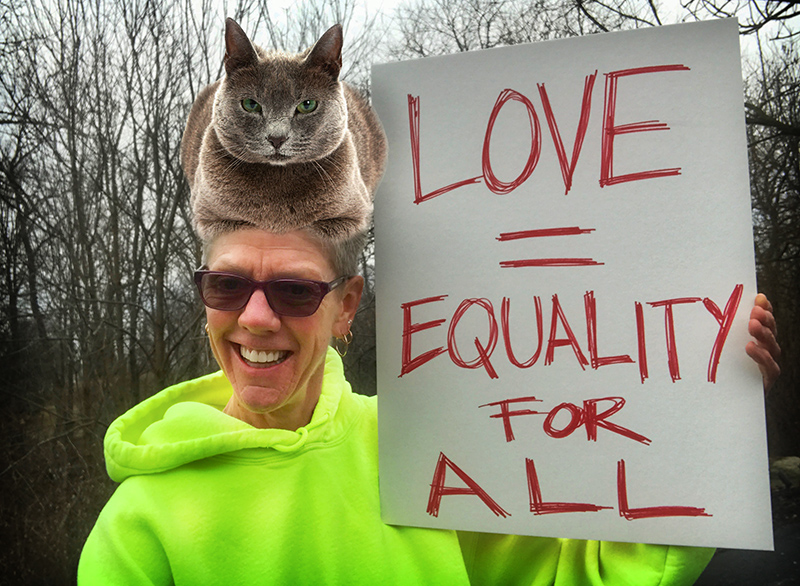 LOVE
=
EQUALITY
FOR
ALL